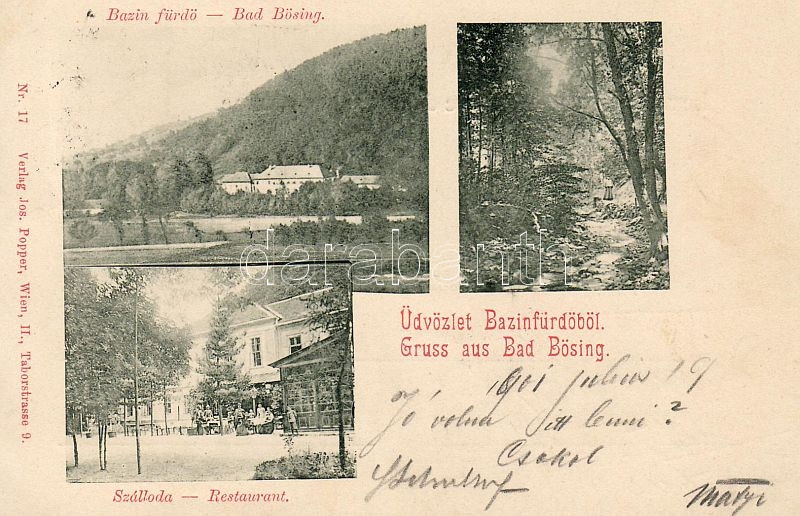 Bazin fürdö — Bad Bösing.
Nr. 17 Verlag Jos. Popper, Wien, II., Taborstrasse 9.
darabanth
Üdvözlet Bazinfürdöböl.
Gruss aus Bad Bösing.
901 julius 19
Jó volna itt lenni?
Csokol
Matyi
Szálloda — Restaurant.